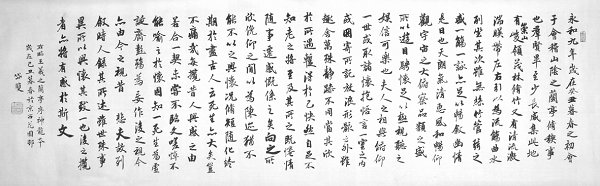 永和九年歲在癸丑暮春之初會
于會稽山陰之蘭亭脩稧事
也群賢畢至少長咸集此地
有崇山峻領茂林脩竹又有清流激
湍暎帶左右引以為流觴曲水
列坐其次雖無絲竹管弦之
盛一觴一詠亦足以暢叙幽情
是日也天朗氣清惠風和暢仰
觀宇宙之大俯察品類之盛
所以遊目騁懷足以極視聽之
娛信可樂也夫人之相與俯仰
一世或取諸懷抱悟言一室之內
或因寄所託放浪形骸之外雖
趣舍萬殊靜躁不同當其欣
於所遇暫得於己快然自足不
知老之將至及其所之既惓情
隨事遷感慨係之矣向之所
欣俛仰之間以為陳迹猶不
能不以之興懷況脩短隨化終
期於盡古人云死生亦大矣豈
不痛哉每攬昔人興感之由
若合一契未嘗不臨文嗟悼不
能喻之於懷固知一死生為虛
誕齊彭殤為妄作後之視今
亦由今之視昔悲夫故列
叙時人錄其所述雖世殊事
異所以興懷其致一也後之攬
者亦將有感於斯文
臨王羲之蘭亭序神龍本
歲在己丑暮春於京